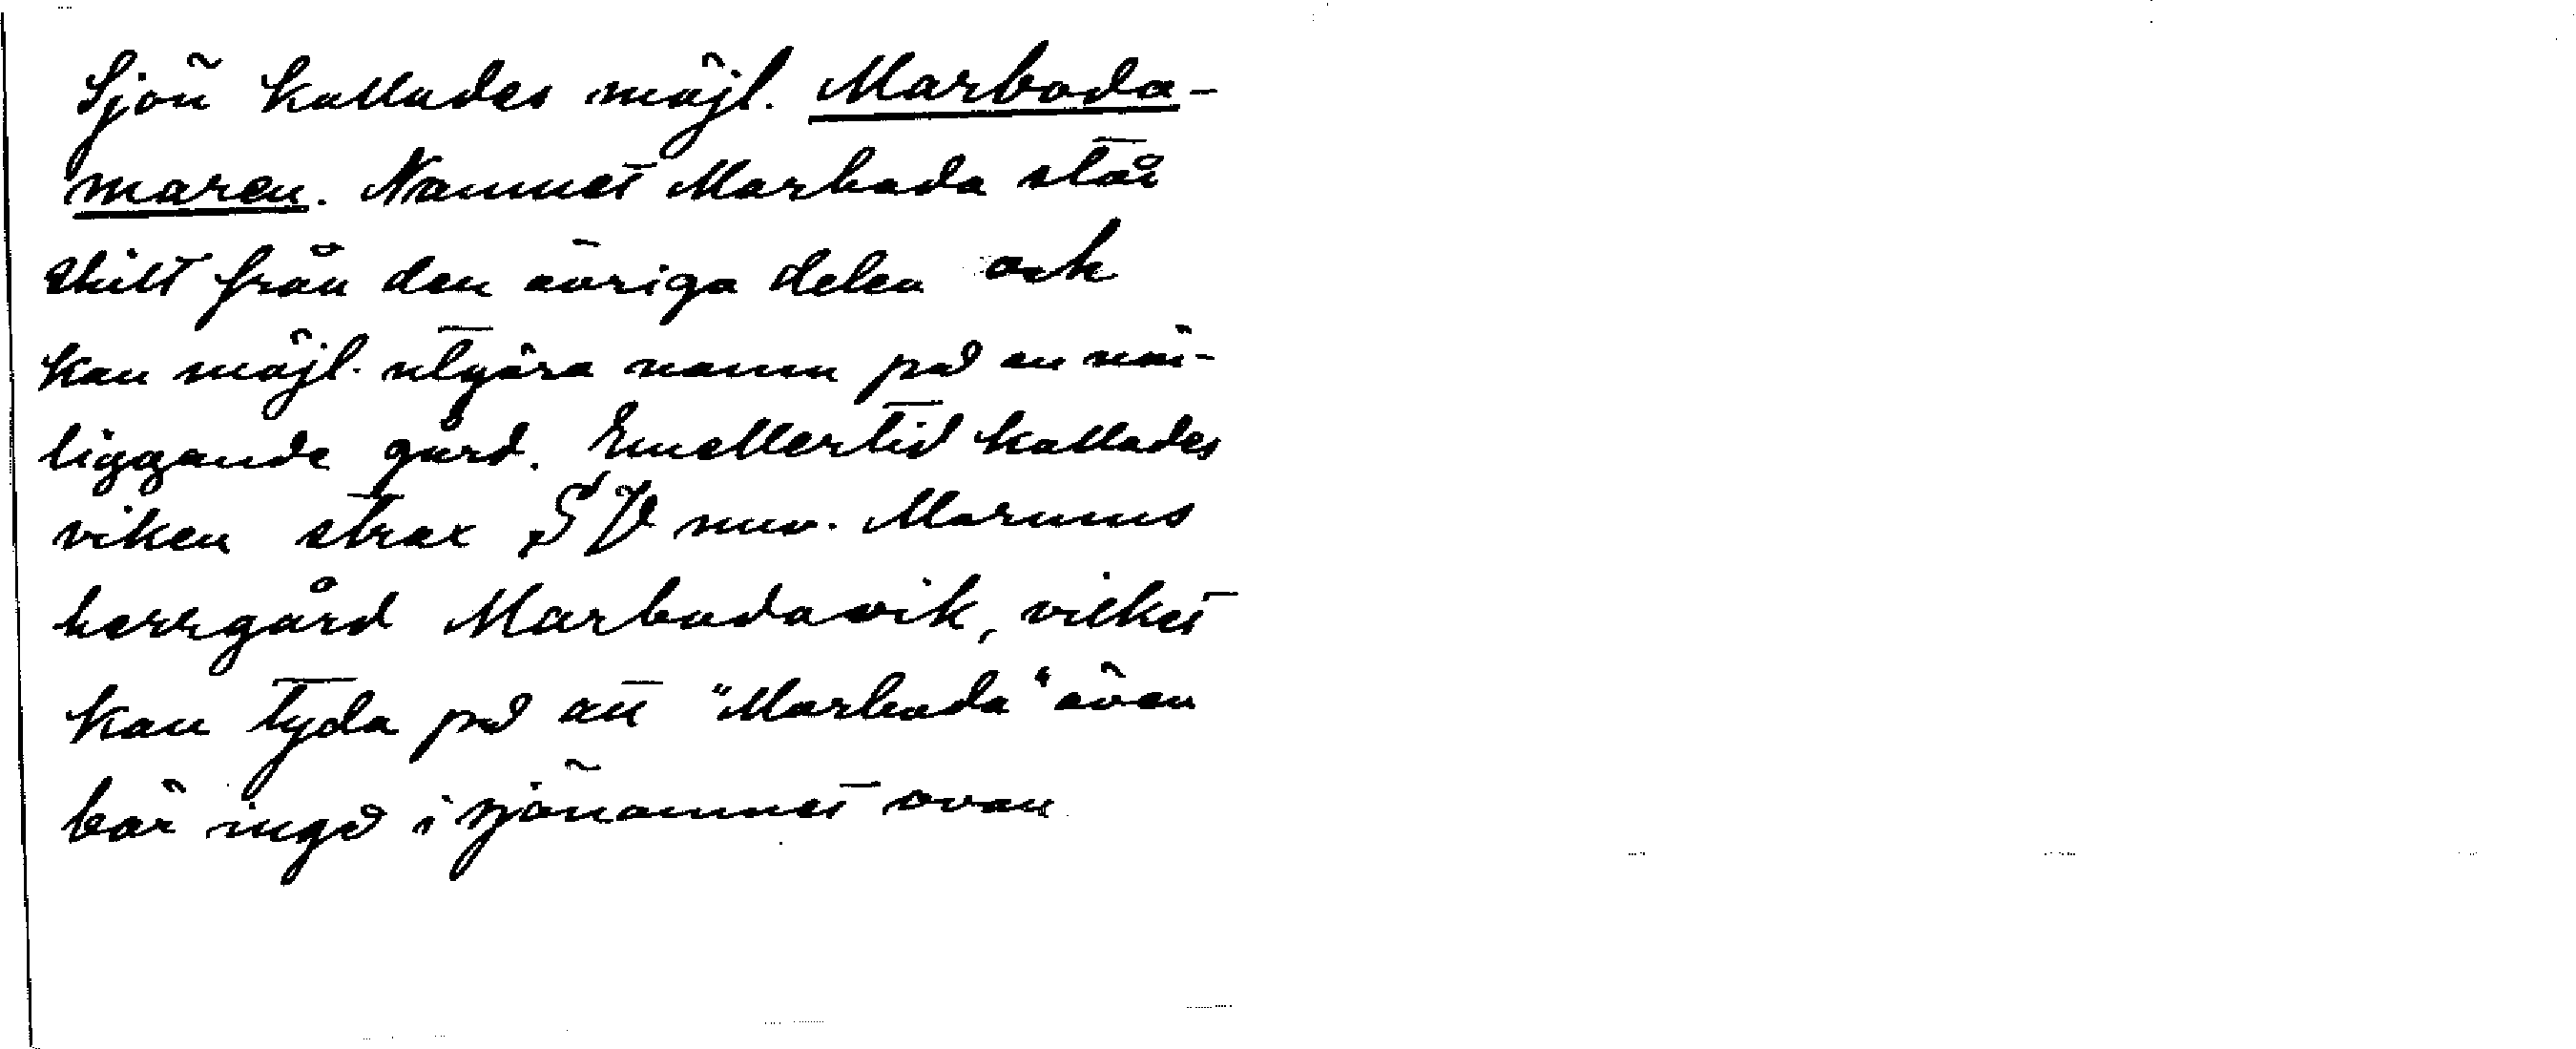 Sjön kallades möjl. Marboda-
maren. Namnet Marboda står
skilt från den övriga delen och
kan möjl. utgöra namn på en när-
liggande gård. Emellertid kallades
viken strax SV nuv. Marums
herrgård Marbodavik, vilket
kan tyda på att "Marboda" även
bör ingå i sjönamnet ovan